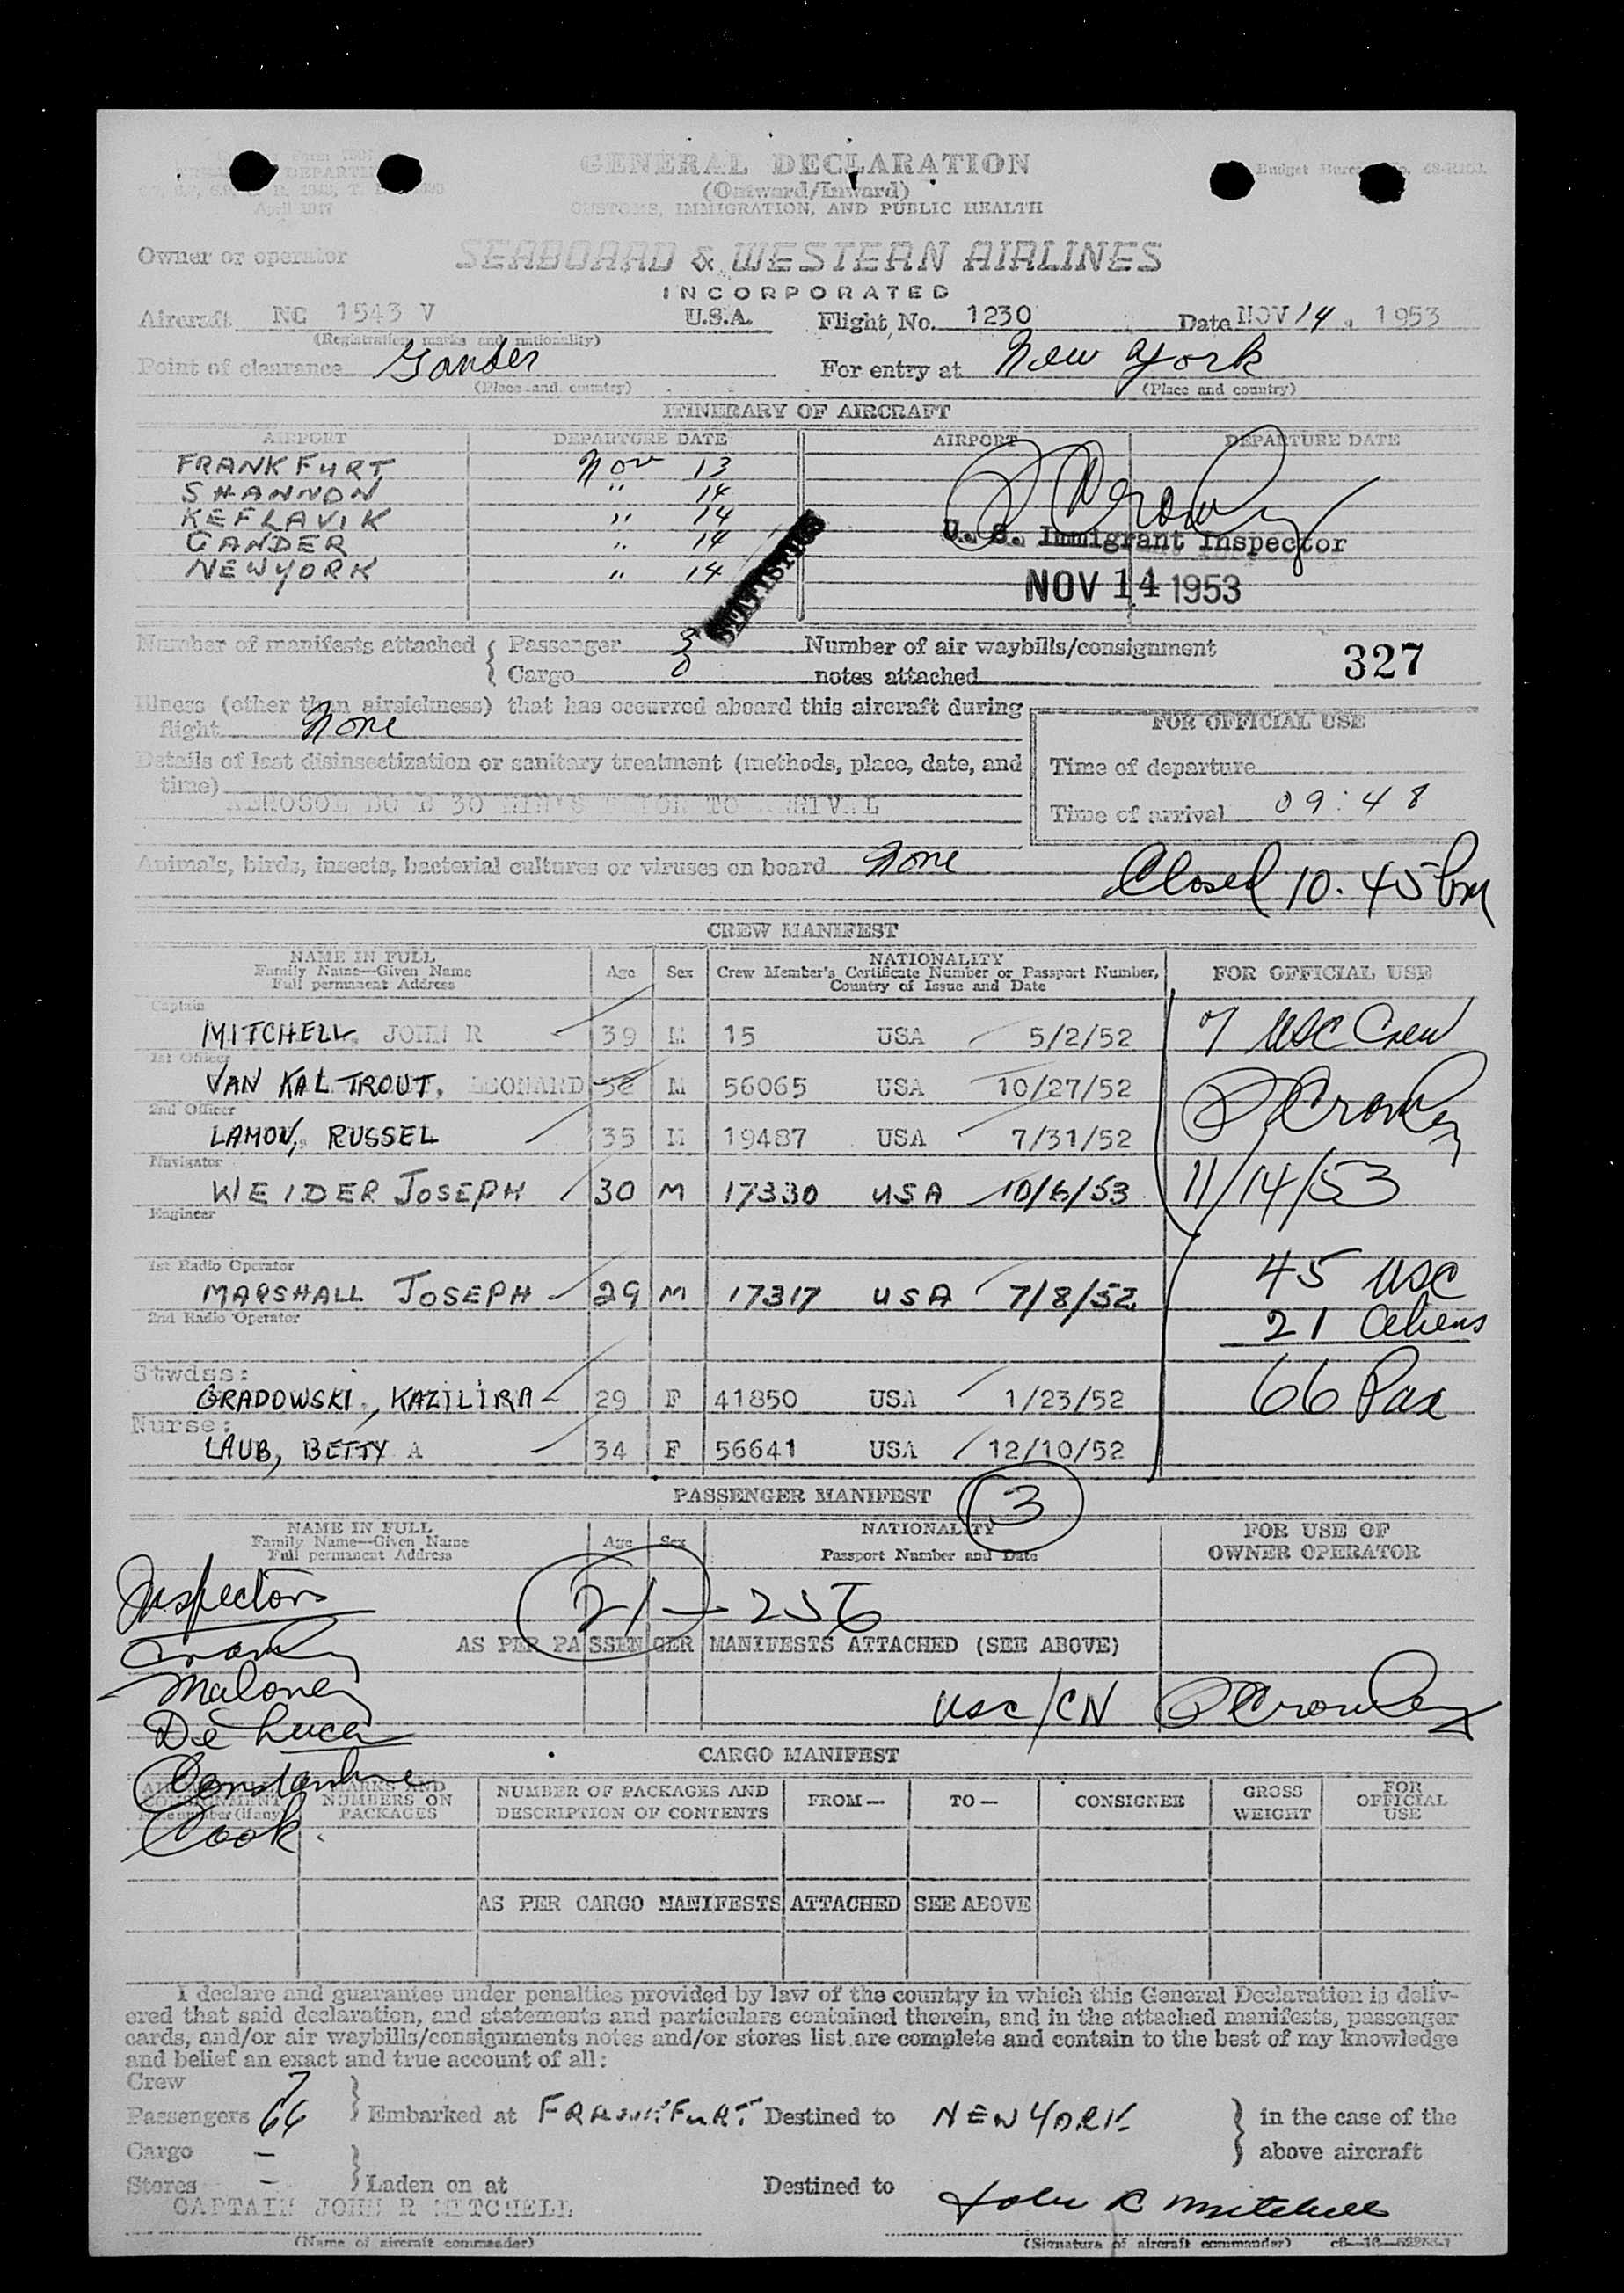 Form
DEPARTMENT
April 1947
GENERAL DECLARATION
(Outward/Inward)
CUSTOMS, IMMIGRATION, AND PUBLIC HEALTH
Budget Bureau No.
Owner or operator SEABOARD & WESTERN AIRLINES
INCORPORATED
Aircraft NC 1543 V U.S.A. Flight No. 1230 Date NOV 14, 1953
(Registration marks and nationality)
Point of clearance Gander For entry at New York
(Place and country) (Place and country)
ITINERARY OF AIRCRAFT
AIRPORT DEPARTURE DATE AIRPORT DEPARTURE DATE
FRANKFURT Nov 13
SHANNON " 14
KEFLAVIK " 14
GANDER " 14
NEWYORK " 14
STATISTICS
Crowley
U. S. Immigrant Inspector
NOV 14 1953
Number of manifests attached { Passenger 3 Number of air waybills/consignment
Cargo notes attached
327
Illness (other than airsickness) that has occurred aboard this aircraft during
flight None
Details of last disinsectization or sanitary treatment (methods, place, date, and
time)
AEROSOL BOMB 30 MIN'S PRIOR TO ARRIVAL
FOR OFFICIAL USE
Time of departure
Time of arrival 09:48
Animals, birds, insects, bacterial cultures or viruses on board None
Closed 10.45 Pm
CREW MANIFEST
NAME IN FULL
Family Name—Given Name
Full permanent Address
Age Sex
NATIONALITY
Crew Member's Certificate Number or Passport Number,
Country of Issue and Date
FOR OFFICIAL USE
Captain
MITCHELL, JOHN R 39 M 15 USA 5/2/52
7 USC Crew
1st Officer
VAN KALTROUT, LEONARD M 56065 USA 10/27/52
Crowley
2nd Officer
LAMON, RUSSEL 35 M 19487 USA 7/31/52
Navigator
WEIDER JOSEPH 30 M 17330 USA 10/6/53
11/14/53
Engineer
1st Radio Operator
MARSHALL JOSEPH 29 M 17317 USA 7/8/52
45 USC
2nd Radio Operator
21 Aliens
Stwdss:
GRADOWSKI, KAZILIRA 29 F 41850 USA 1/23/52
66 Pax
Nurse:
LAUB, BETTY A 34 F 56641 USA 12/10/52
PASSENGER MANIFEST 3
NAME IN FULL
Family Name—Given Name
Full permanent Address
Age Sex
NATIONALITY
Passport Number and Date
FOR USE OF
OWNER OPERATOR
Inspectors
21
Crowley
AS PER PASSENGER MANIFESTS ATTACHED (SEE ABOVE)
Maloney
USC/CN Crowley
De Luca
CARGO MANIFEST
Constantine
MARKS AND
NUMBERS ON
PACKAGES
NUMBER OF PACKAGES AND
DESCRIPTION OF CONTENTS
FROM—
TO—
CONSIGNEE
GROSS
WEIGHT
FOR
OFFICIAL
USE
Cook
AS PER CARGO MANIFESTS ATTACHED SEE ABOVE
I declare and guarantee under penalties provided by law of the country in which this General Declaration is deliv-
ered that said declaration, and statements and particulars contained therein, and in the attached manifests, passenger
cards, and/or air waybills/consignments notes and/or stores list are complete and contain to the best of my knowledge
and belief an exact and true account of all:
Crew 7
Passengers 66 } Embarked at FRANKFURT Destined to NEW YORK } in the case of the
Cargo — above aircraft
Stores — } Laden on at Destined to
CAPTAIN JOHN R MITCHELL John R Mitchell
(Name of aircraft commander) (Signature of aircraft commander)